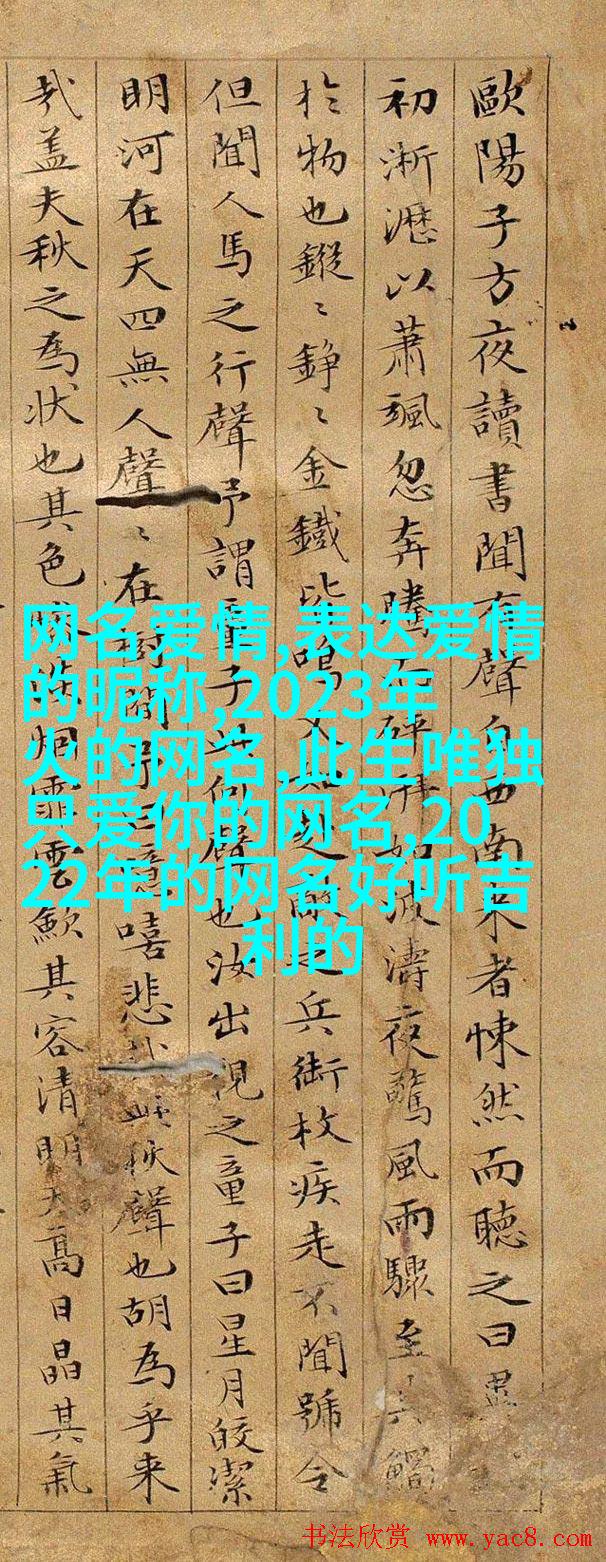 歐陽子方夜讀書聞有聲自西南来者悚然而聽之曰異
初淅瀝以蕭颯忽奔騰而砰湃如波濤夜驚風雨驟至其觸
扵物也鏦〻錚〻金鐵皆鳴又之兵銜枚疾走不聞號令
但聞人馬之行聲予謂童子此何聲也汝出視之童子曰星月皎潔
明河在天四無人聲〻在樹間予曰噫嘻悲秋聲也胡為乎来
哉盖夫秋之為状也其色烟霏雲歛其容清明天髙日晶其氣
网名爱情,表达爱情
的昵称,2023年
火的网名,此生唯独
只爱你的网名,20
22年的网名好听吉
利的
书法欣赏 www.yac8.com